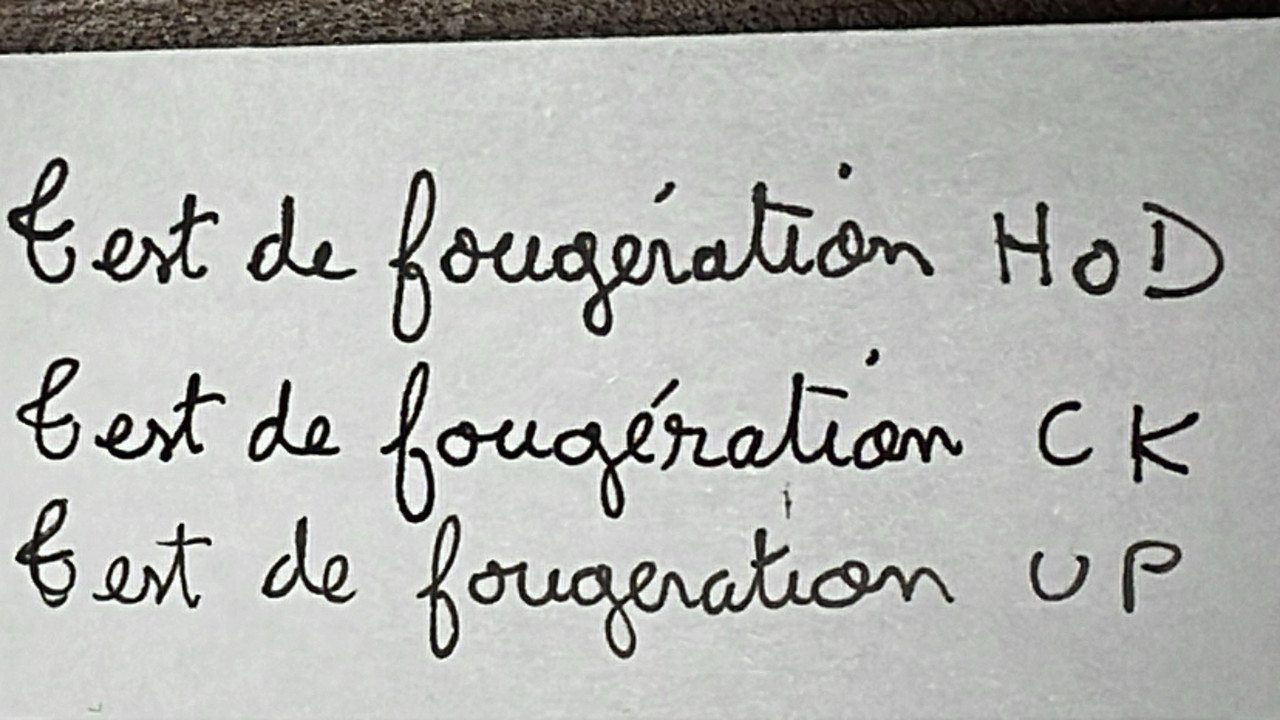 Test de fougération HoD
Test de fougération CK
Test de fougeration UP